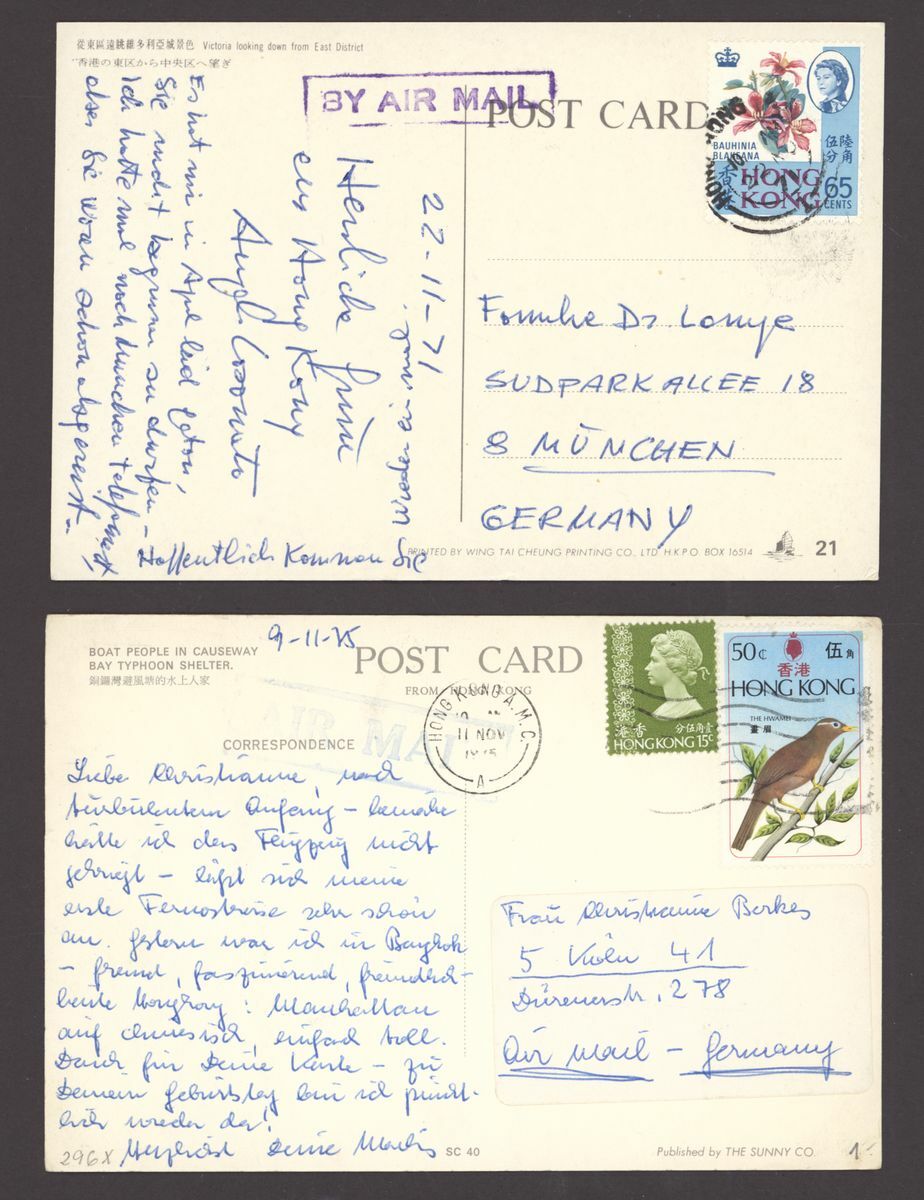 從東區遠眺維多利亞城景色 Victoria looking down from East District
香港の東区から中央区へ望ぎ
BY AIR MAIL
POST CARD
BAUHINIA
BLAKEANA
香港
HONG
KONG
伍陸
分角
65
CENTS
HONG KONG
22-11-71
Herzliche Grüße
aus Hong Kong
Es hat mir in April leid getan,
Sie nicht begrüssen zu dürfen –
Ich hatte mal nach München telefoniert
aber Sie waren schon abgereist.
Hoffentlich kommen Sie
wieder einmal
Familie Dr. Lange
SUDPARKALLEE 18
8 MÜNCHEN
GERMANY
PRINTED BY WING TAI CHEUNG PRINTING CO., LTD. H.K.P.O. BOX 16514
21
BOAT PEOPLE IN CAUSEWAY
BAY TYPHOON SHELTER.
銅鑼灣避風塘的水上人家
9-11-75
POST CARD
FROM HONG KONG
AIR MAIL
CORRESPONDENCE
HONG KONG A.M.C.
11 NOV
1975
A
港香
分伍角壹
HONG KONG 15c
50¢
伍角
香港
HONG KONG
THE HWAMEI
畫眉
Liebe Christianne, nach
turbulentem Anfang – beinahe
hätte ich das Flugzeug nicht
gekriegt – läßt sich meine
erste Fernostreise sehr schön
an. Gestern war ich in Bangkok
– fremd, faszinierend, freundlich –
heute Hongkong: Manhattan
auf chinesisch, einfach toll.
Dank für Deine Karte – zu
Deinem Geburtstag bin ich pünkt-
lich wieder da!
Herzlichst Deine
Frau Christianne Berkes
5 Köln 41
Dürenerstr. 278
Air Mail – Germany
296X
SC 40
Published by THE SUNNY CO.
1-